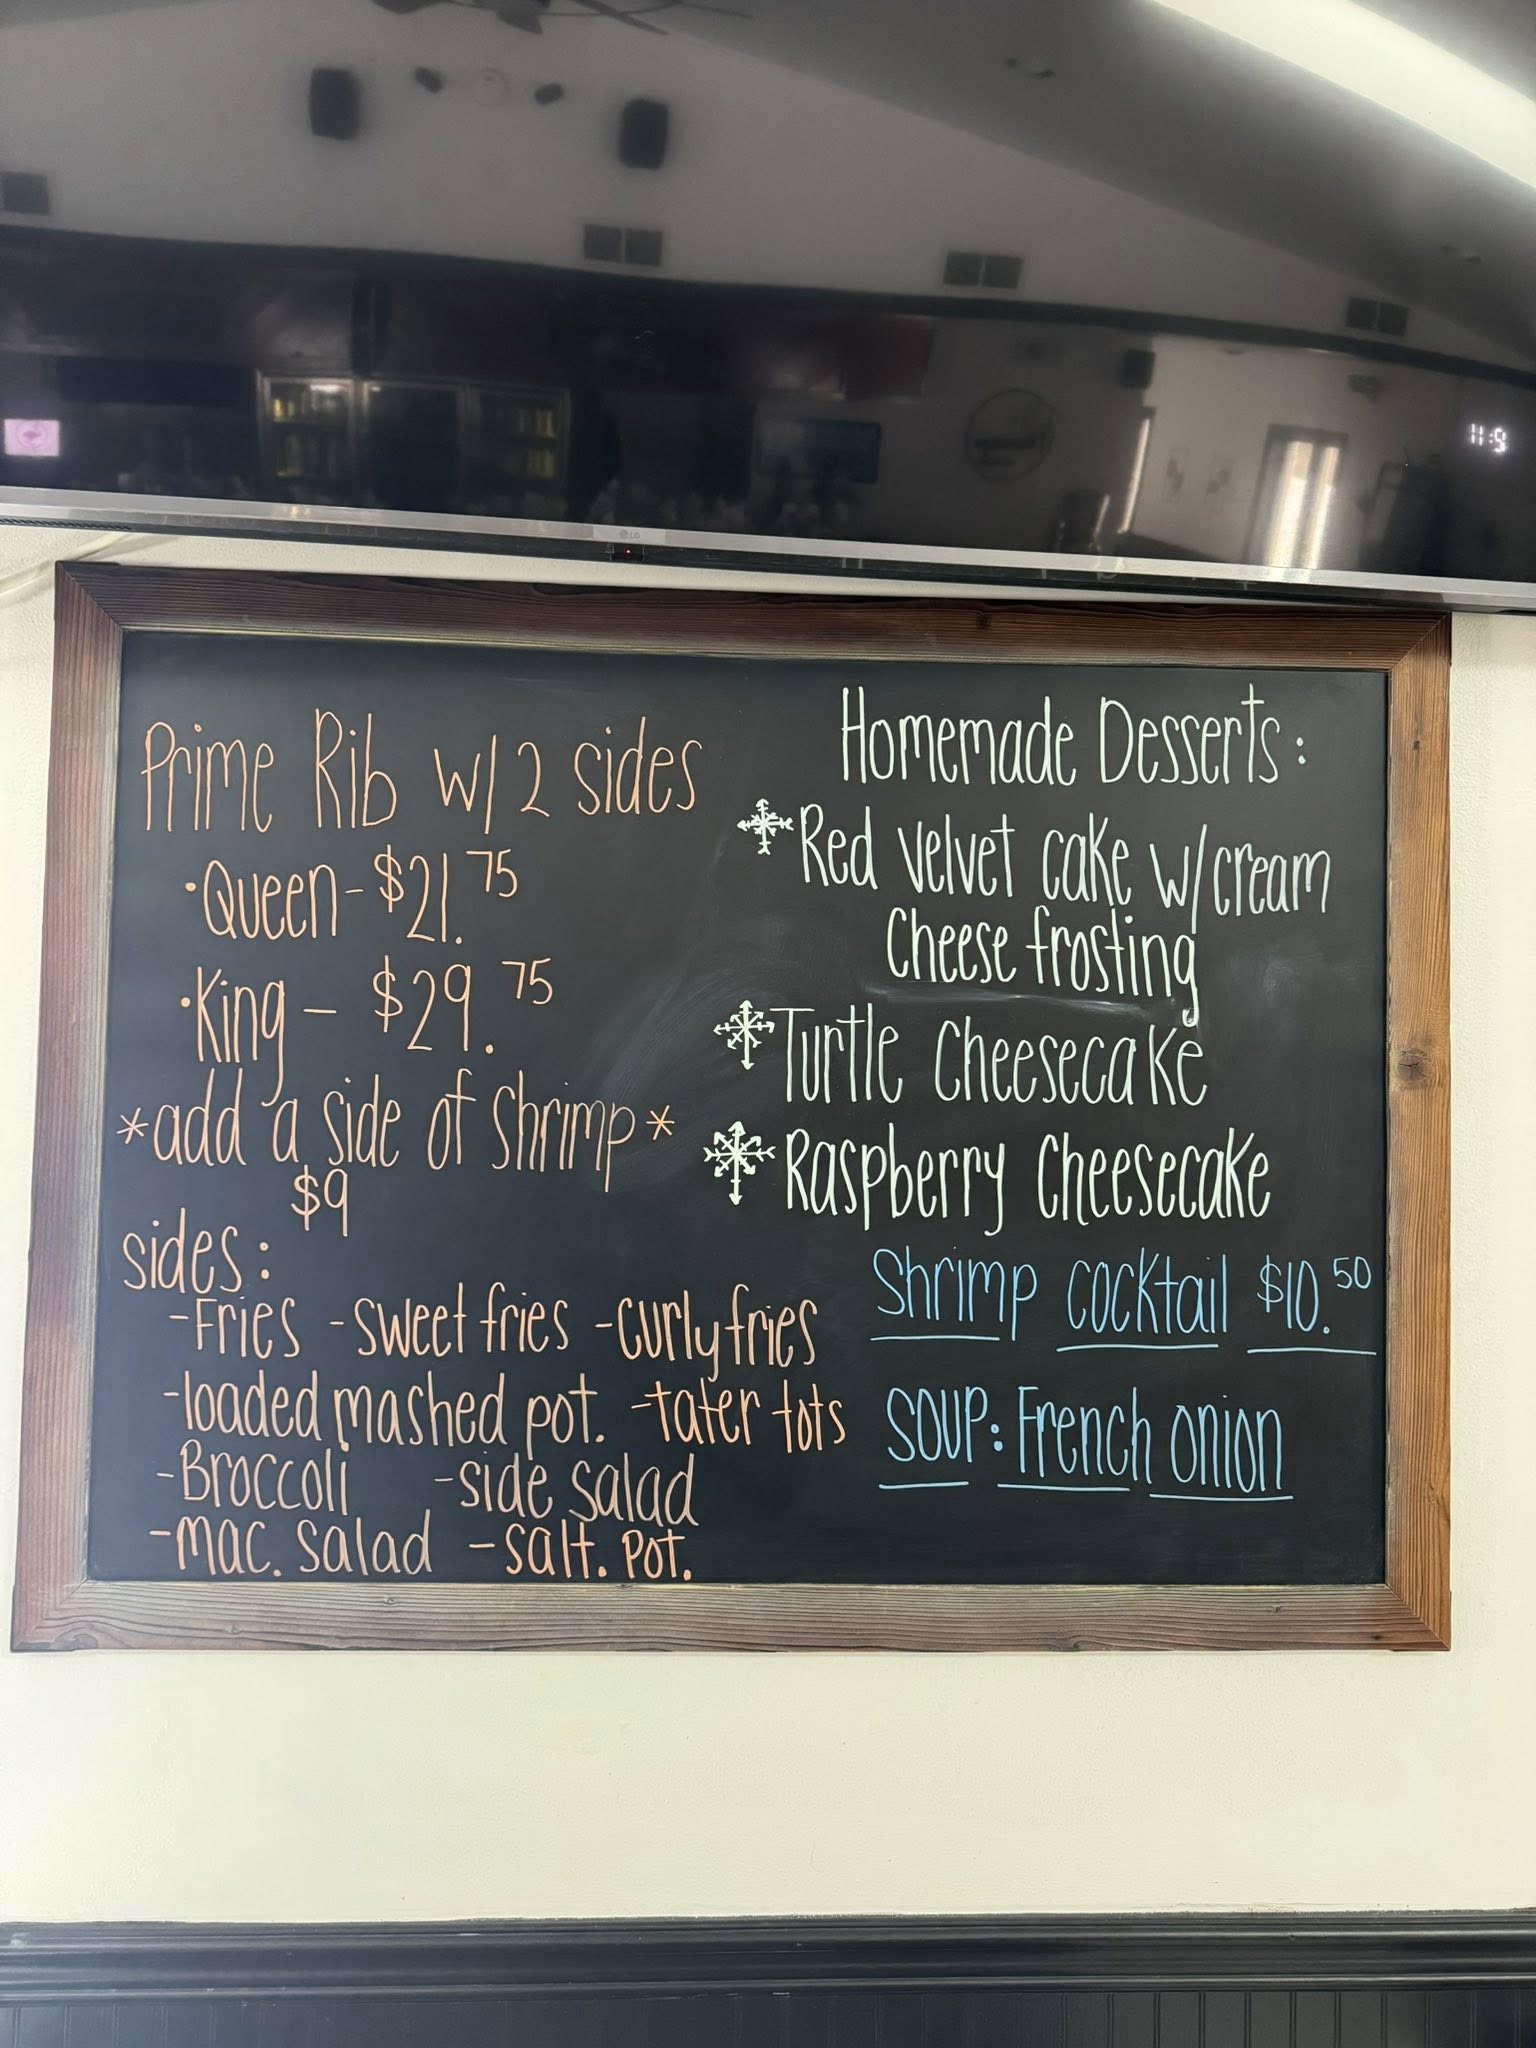 11:9
LG
Prime Rib w/ 2 sides
·Queen - $21.75
·King - $29.75
*add a side of shrimp*
$9
sides:
-Fries -sweet fries -curly fries
-loaded mashed pot. -tater tots
-Broccoli -side salad
-mac. salad -salt. pot.
Homemade Desserts:
Red velvet cake w/cream
Cheese frosting
Turtle Cheesecake
Raspberry Cheesecake
Shrimp cocktail $10.50
SOUP: French onion